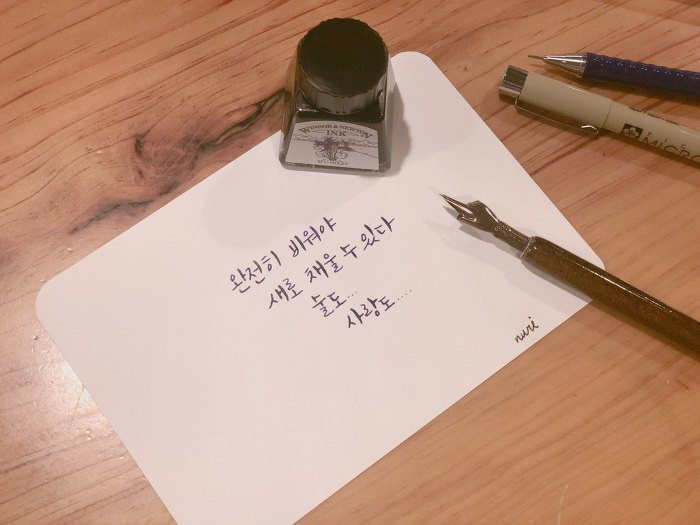 WINSOR & NEWTON
INK
완전히 비워야
새로 채울 수 있다
술도...
사랑도....
nuri
MICRO